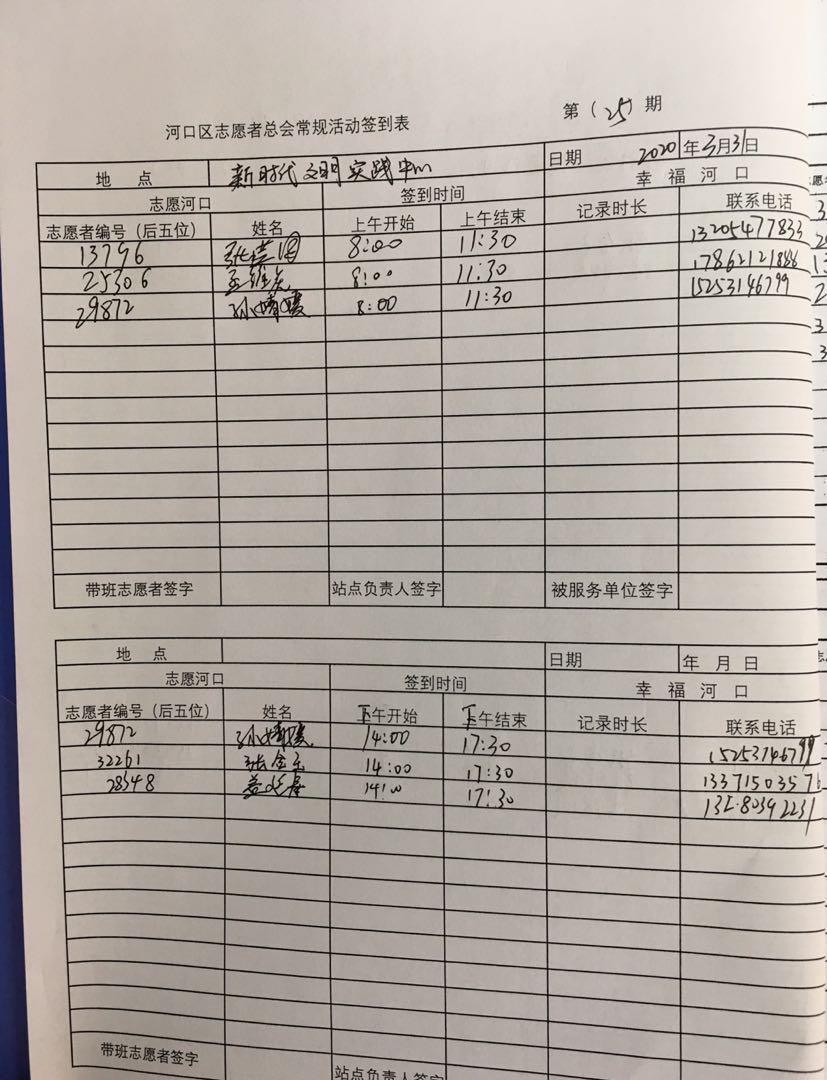 河口区志愿者总会常规活动签到表 第（25）期
地 点 新时代文明实践中心 日期 2020年3月31日
志愿河口 签到时间 幸 福 河 口
志愿者编号（后五位） 姓名 上午开始 上午结束 记录时长 联系电话
13796 8:00 11:30 13205477833
25306 8:00 11:30 17862121886
29872 孙婧媛 8:00 11:30 15253146799
带班志愿者签字 站点负责人签字 被服务单位签字
地 点 日期 年 月 日
志愿河口 签到时间 幸 福 河 口
志愿者编号（后五位） 姓名 下午开始 下午结束 记录时长 联系电话
29872 孙婧媛 14:00 17:30 15253146799
32261 张金玉 14:00 17:30 13371503576
28348 14:00 17:30
带班志愿者签字 站点负责人签字